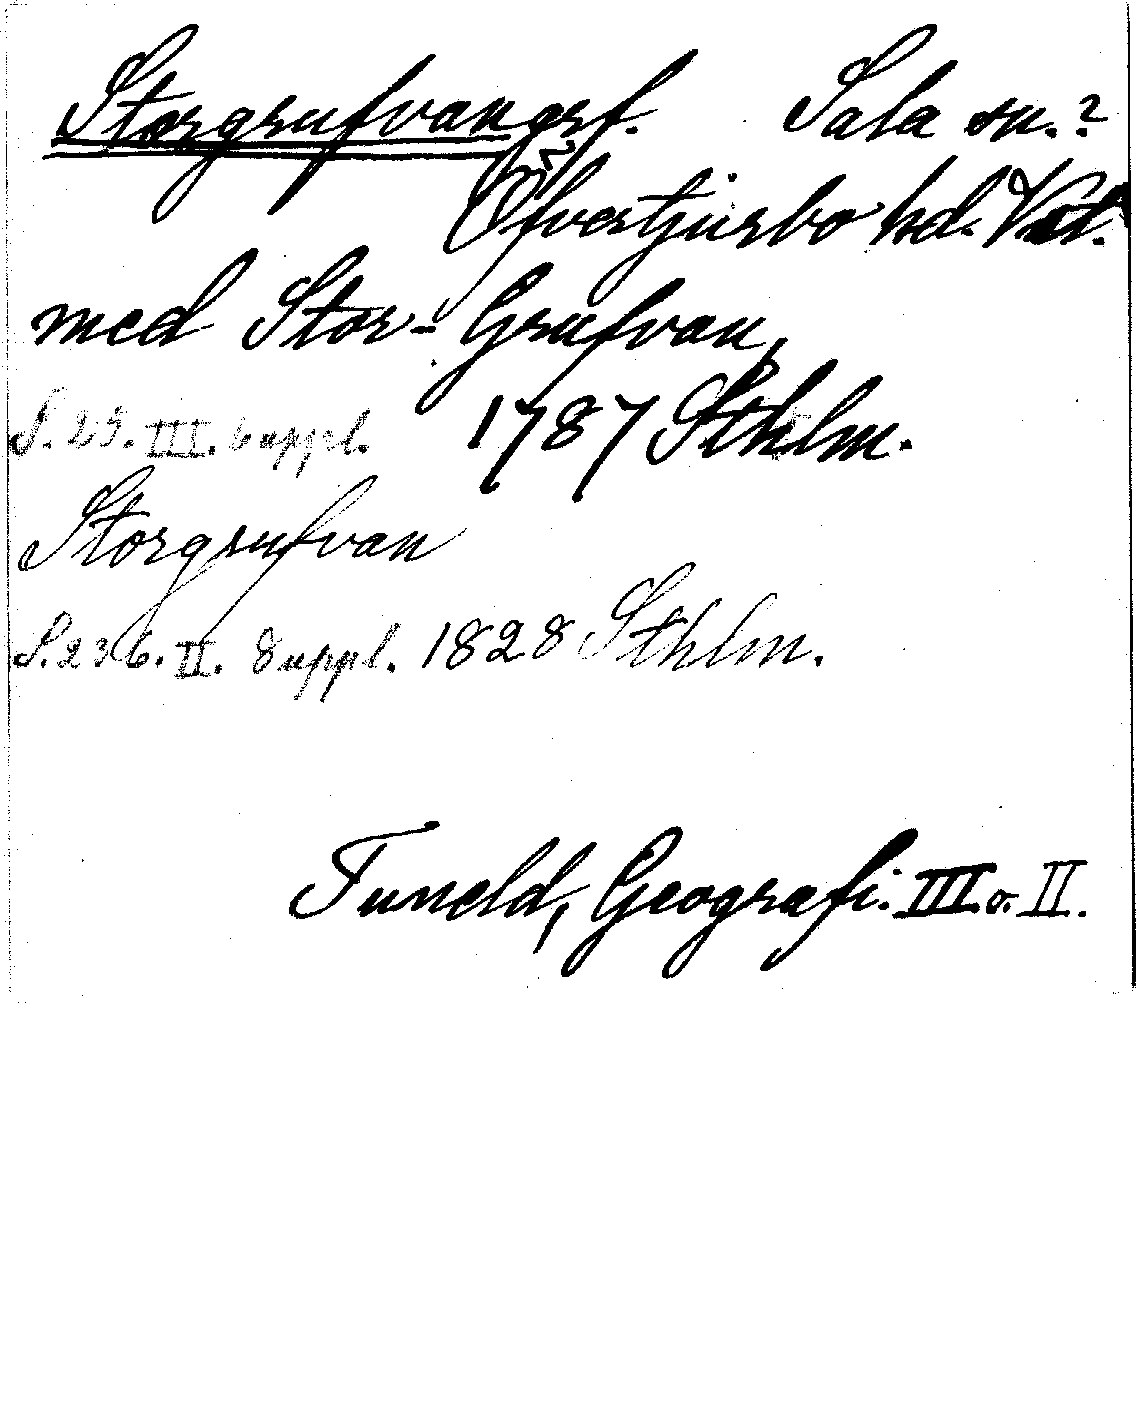 Storgrufvan grf. Sala sn.?
Öfvertjurbo hd. Vstl.
med Stor-Grufvan,
S. 25. III. Suppl. 1787 Sthlm.
Storgrufvan
S. 236. II. Suppl. 1828 Sthlm.
Tuneld, Geografi. III o. II.